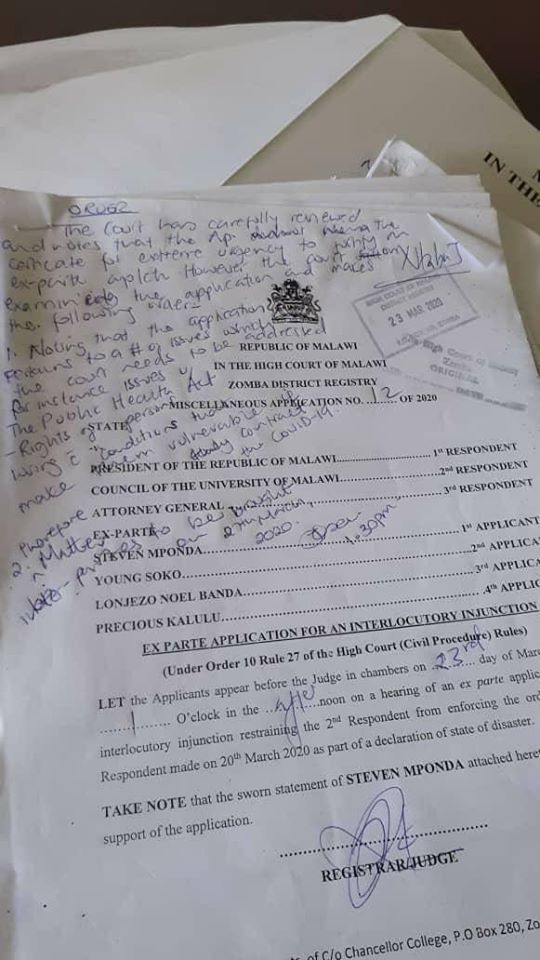 M
IN THE
ORDER
The Court has carefully reviewed
and notes that the Ap
certificate for extreme urgency to justify an
ex-parte aplctn However the court
examin the application and makes
the following orders
1. Noting that the application
Pertains to a # of issues which
the court needs to be addressed
for instance issues
The Public Health Act
- Rights of persons
living c "conditions that
make them vulnerable
contract
the COVID-19.
2. Therefore
Matter to be brought
inter-partes on 27th March,
2020. 1.30pm
HIGH COURT OF MALAWI
23 MAR 2020
High Court of Malawi
Zomba
ORIGINAL
REPUBLIC OF MALAWI
IN THE HIGH COURT OF MALAWI
ZOMBA DISTRICT REGISTRY
MISCELLANEOUS APPLICATION NO. 12 OF 2020
STATE
PRESIDENT OF THE REPUBLIC OF MALAWI 1st RESPONDENT
COUNCIL OF THE UNIVERSITY OF MALAWI 2nd RESPONDENT
ATTORNEY GENERAL 3rd RESPONDENT
EX-PARTE
STEVEN MPONDA 1st APPLICANT
YOUNG SOKO 2nd APPLICA
LONJEZO NOEL BANDA 3rd APPLIC
PRECIOUS KALULU 4th APPLI
EX PARTE APPLICATION FOR AN INTERLOCUTORY INJUNCTION
(Under Order 10 Rule 27 of the High Court (Civil Procedure) Rules)
LET the Applicants appear before the Judge in chambers on 23rd day of Marc
1 O'clock in the after noon on a hearing of an ex parte applic
interlocutory injunction restraining the 2nd Respondent from enforcing the ord
Respondent made on 20th March 2020 as part of a declaration of state of disaster.
TAKE NOTE that the sworn statement of STEVEN MPONDA attached here
support of the application.
REGISTRAR/JUDGE
of C/o Chancellor College, P.O Box 280, Zo